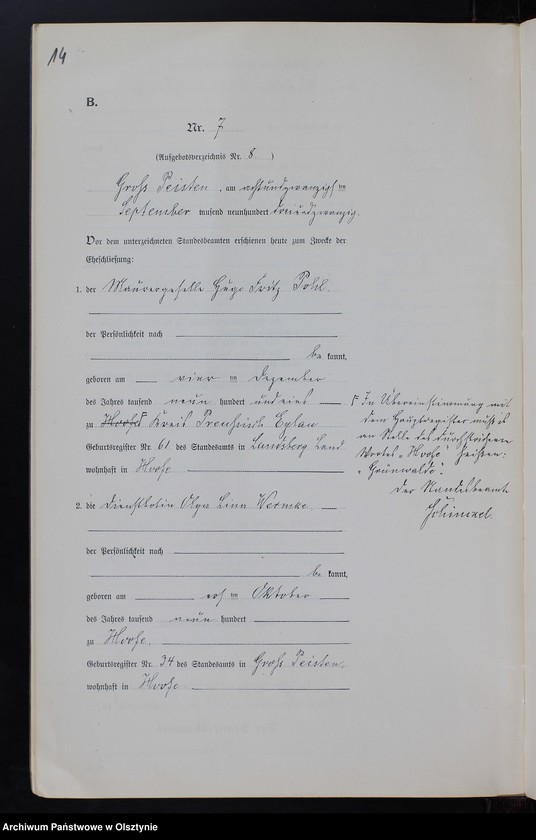 14
B.
Nr. 7
(Aufgebotsverzeichnis Nr. 8 )
Gross Peisten, am achtundzwanzigsten
September tausend neunhundert dreiundzwanzig.
Vor dem unterzeichneten Standesbeamten erschienen heute zum Zwecke der
Eheschließung:
1. der Maurergeselle Hugo Fritz Pohl.
der Persönlichkeit nach
be kannt,
geboren am vier ten Dezember
des Jahres tausend neun hundert und eins
zu Hoofe Kreis Preussisch Eylau
Geburtsregister Nr. 61 des Standesamts in Landsberg Land
wohnhaft in Hoofe
2. die Dienstbotin Olga Lina Wermke.
der Persönlichkeit nach
be kannt,
geboren am ten Oktober
des Jahres tausend neun hundert
zu Hoofe.
Geburtsregister Nr. 34 des Standesamts in Gross Peisten,
wohnhaft in Hoofe
In Übereinstimmung mit
dem Hauptregister muß es
an Stelle des durchstrichenen
Wortes „Hoofe" heißen:
„Grünwalde".
Der Standesbeamte
Schimkel.
Archiwum Państwowe w Olsztynie